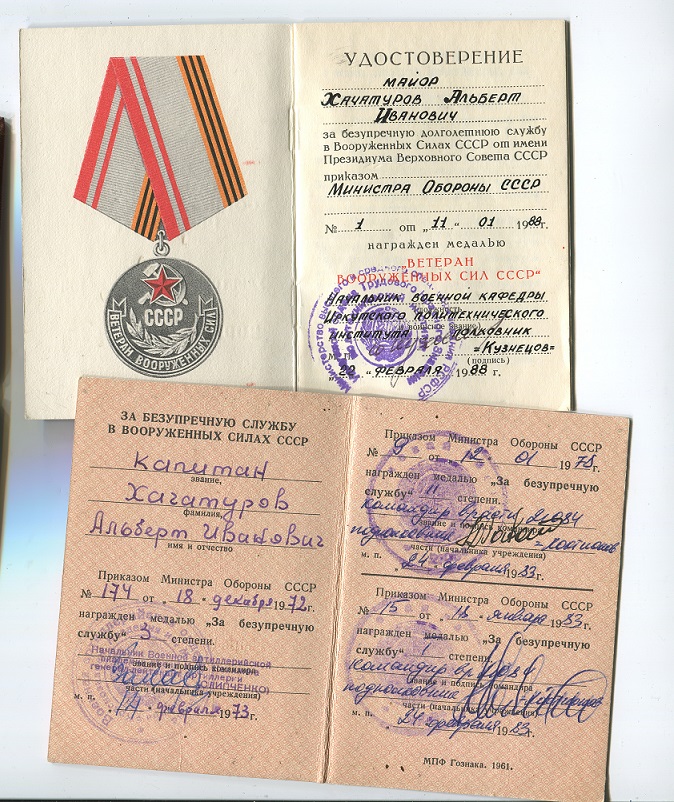 СССР
ВЕТЕРАН ВООРУЖЕННЫХ СИЛ
УДОСТОВЕРЕНИЕ
майор
Хачатуров Альберт
Иванович
за безупречную долголетнюю службу
в Вооруженных Силах СССР от имени
Президиума Верховного Совета СССР
приказом
Министра Обороны СССР
№ 1 от „11“ 01 1988г.
награжден медалью
ВЕТЕРАН
ВООРУЖЕННЫХ СИЛ СССР“
Начальник военной кафедры
Иркутского политехнического
института полковник
=Кузнецов=
(подпись)
м. п.
„22“ февраля 1988
ЗА БЕЗУПРЕЧНУЮ СЛУЖБУ
В ВООРУЖЕННЫХ СИЛАХ СССР
Капитан
звание,
Хачатуров
фамилия,
Альберт Иванович
имя и отчество
Приказом Министра Обороны СССР
№ 174 от 18 декабря 1972г.
награжден медалью „За безупречную
службу“ 3 степени.
Начальник Военной артиллерийской
звание и подпись командира
части (начальника учреждения)
м. п. 14 февраля 1973г.
Приказом Министра Обороны СССР
№ 9 от 12 01 1978г.
награжден медалью „За безупречную
службу“ II степени.
командир
звание и подпись командира
подполковник
части (начальника учреждения)
м. п. 24 февраля 1983г.
Приказом Министра Обороны СССР
№ 15 от 18 январь 1983г.
награжден медалью „За безупречную
службу“ I степени.
командир
звание и подпись командира
подполковник
части (начальника учреждения)
м. п. 24 февраля 1983г.
МПФ Гознака. 1961.